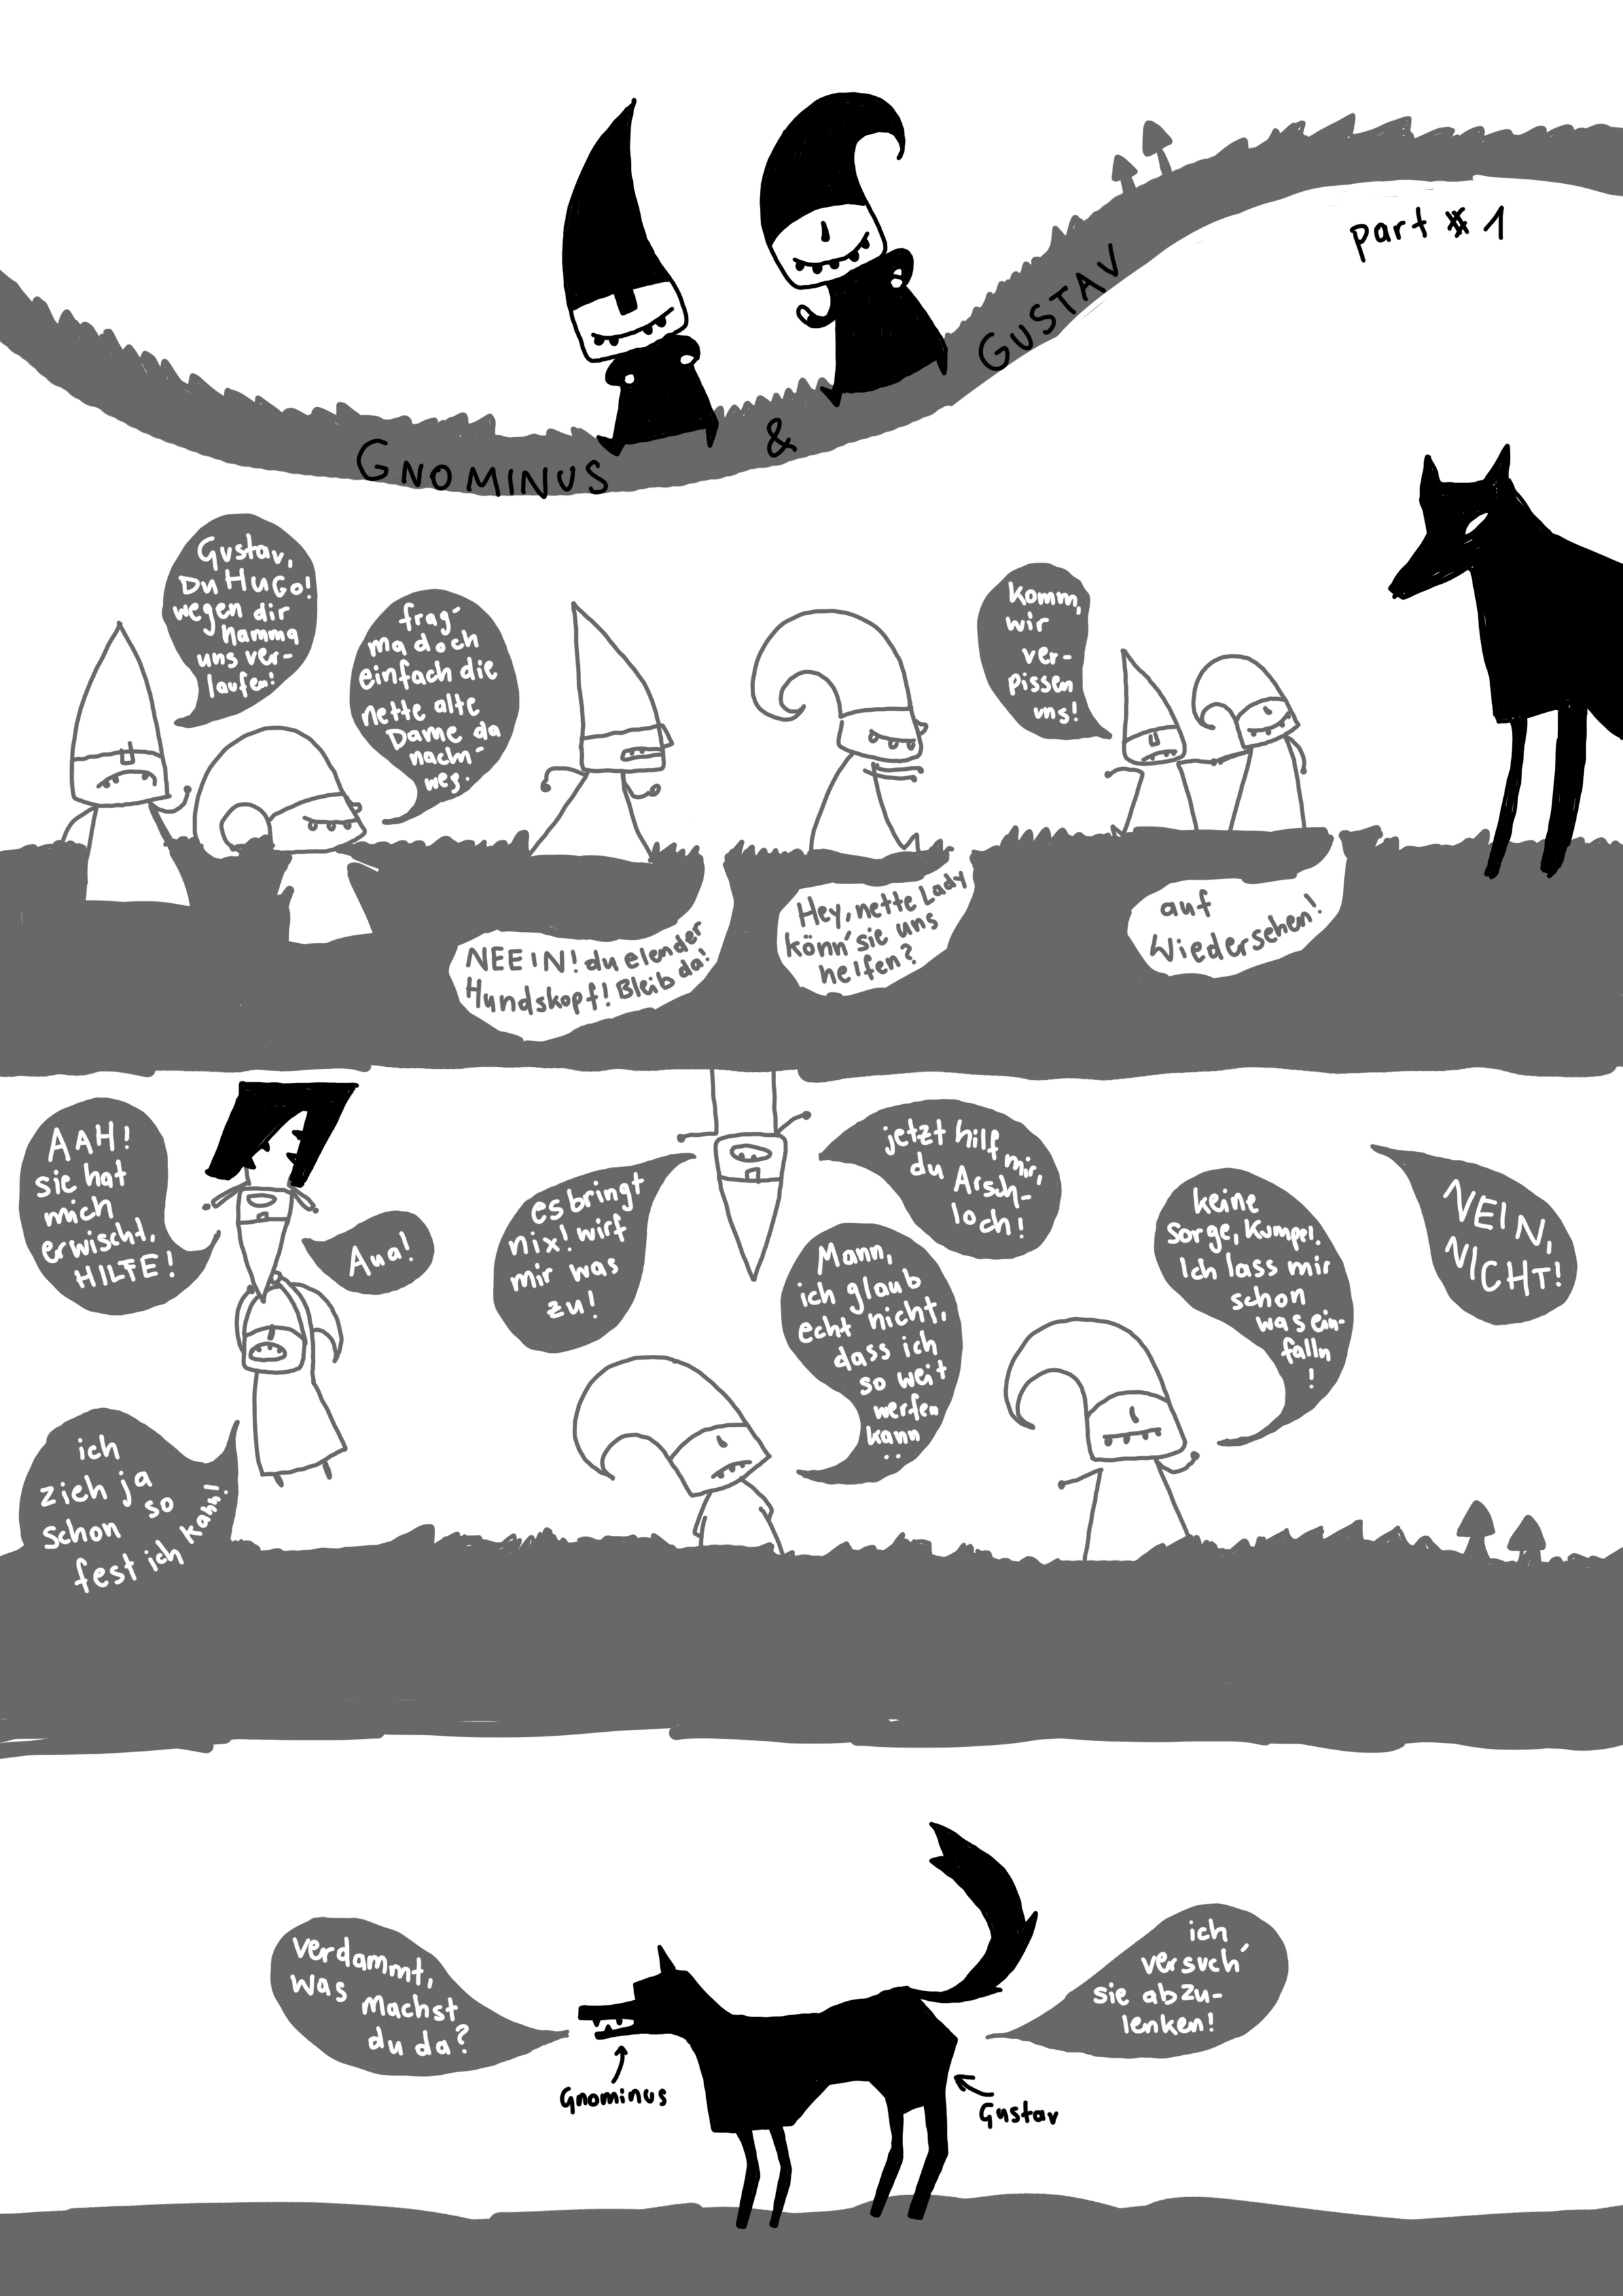 part # 1
GNOMINUS & GUSTAV
Gustav,
Du HuGo!
wegen dir
hamma
uns ver-
laufen!
frag'
ma doch
einfach die
nette alte
Dame da
nach'm
weg.
NEEIN! du elender
Hundskopf! Bleib da!
Hey, nette Lady
könn' sie uns
helfen?
komm,
wir
ver-
pissen
uns!
auf
Wiedersehen!
AAH!
sie hat
mich
erwischt,
HILFE!
Aua!
ich
zieh ja
schon so
fest ich kann!
es bringt
nix! wirf
mir was
zu!
jetzt hilf mir,
du Arsch-
loch!
Mann,
ich glaub
echt nicht,
dass ich
so weit
werfen
kann
..
keine
Sorge, Kumpel.
Ich lass mir
schon
was ein-
falln
!
NEIN,
NICHT!
verdammt,
was machst
du da?
ich
versuch'
sie abzu-
lenken!
Gnominus
Gustav